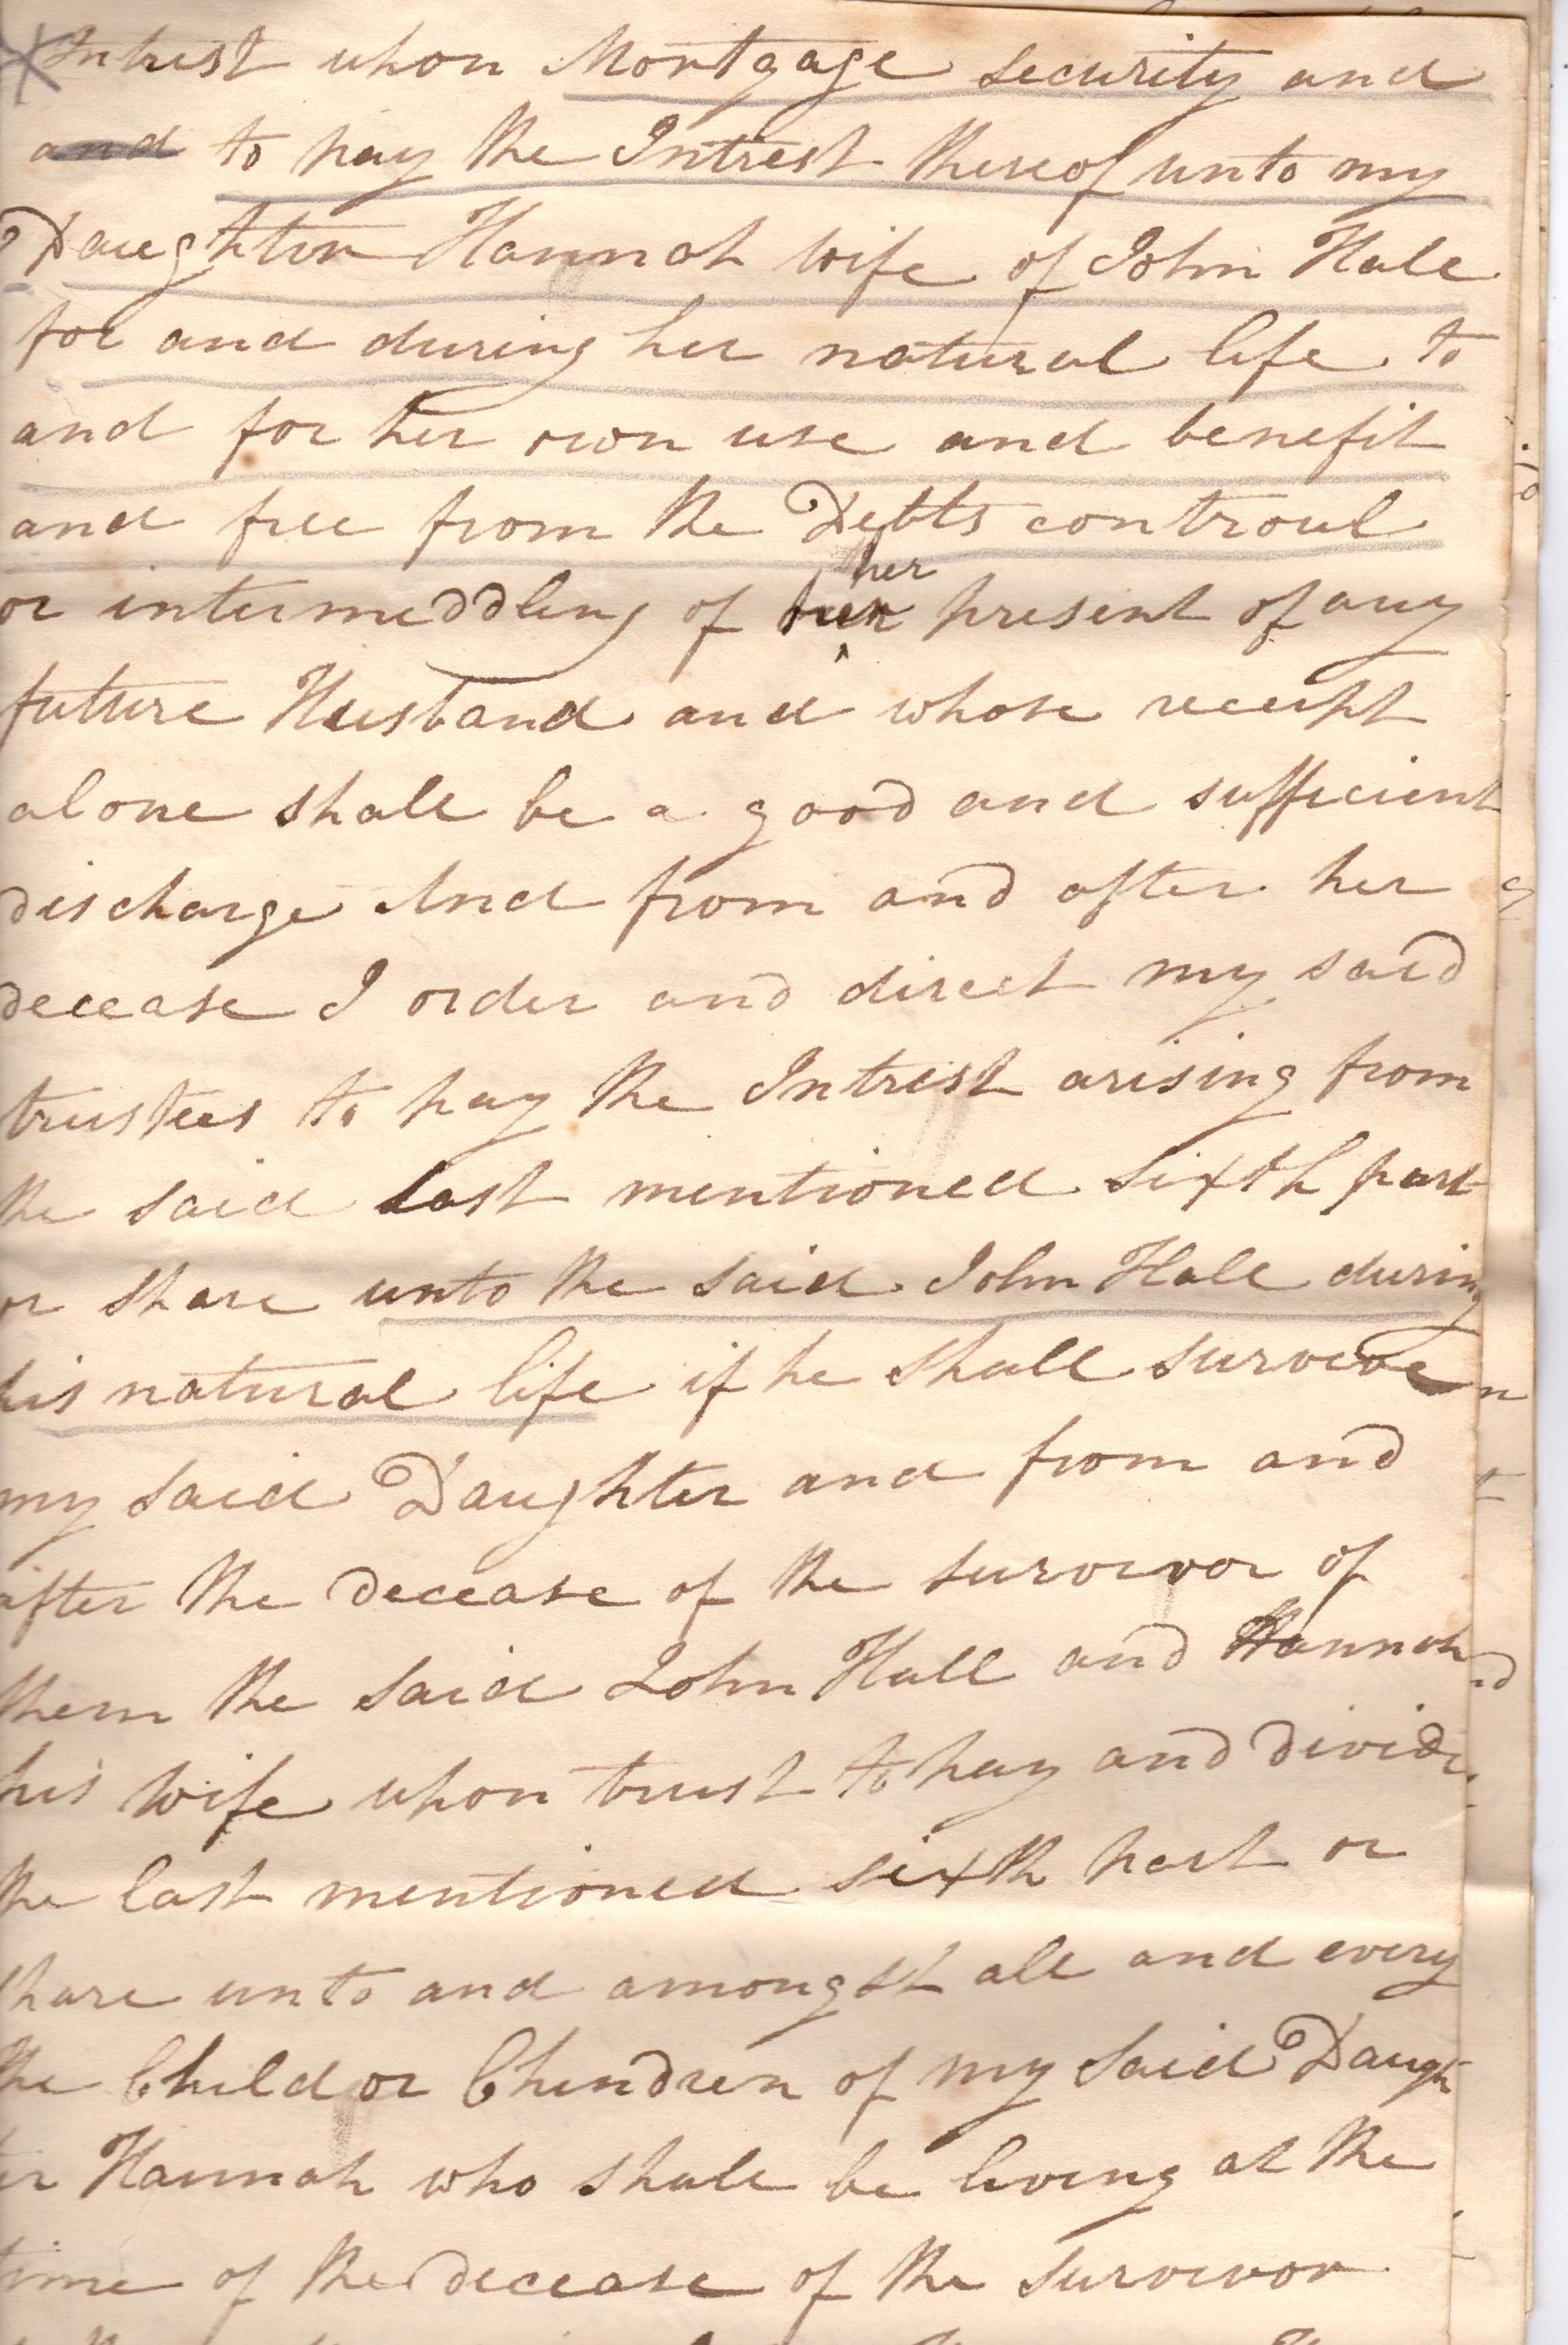 Intrest upon Mortgage security and
and to pay the Intrest thereof unto my
Daughter Hannah wife of John Hale
for and during her natural life to
and for her own use and benefit
and free from the Debts controul
her
or intermeddling of her present of any
future Husband and whose receipt
alone shall be a good and sufficient
discharge And from and after her
decease I order and direct my said
trustees to pay the Intrest arising from
the said last mentioned sixth part
or share unto the said John Hall during
his natural life if he shall survive
my said Daughter and from and
after the decease of the survivor of
them the said John Hall and Hannah
his wife upon trust to pay and divide
the last mentioned sixth part or
share unto and amongst all and every
the Child or Chendren of my said Daugh
ter Hannah who shall be living at the
time of the decease of the survivor